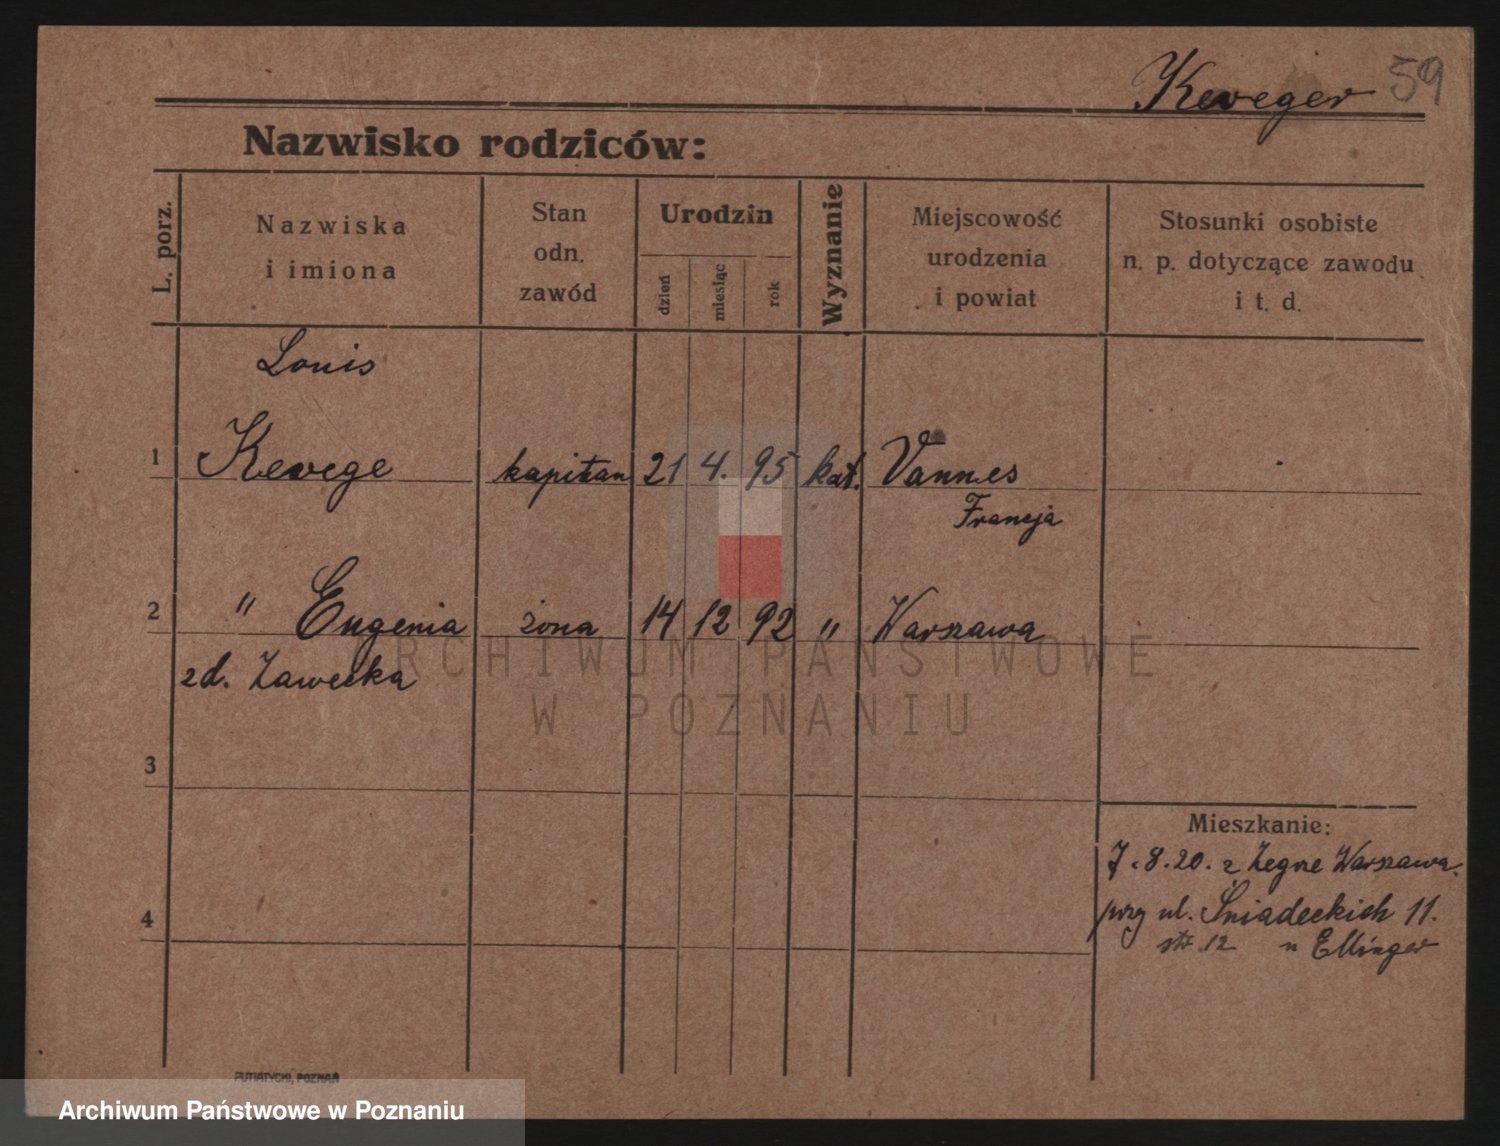 Keveger 59
Nazwisko rodziców:
L. porz.
Nazwiska
i imiona
Stan
odn.
zawód
Urodzin
dzień
miesiąc
rok
Wyznanie
Miejscowość
urodzenia
i powiat
Stosunki osobiste
n. p. dotyczące zawodu
i t. d.
Louis
1 Kevege kapitan 21 4. 95 kat. Vannes
Francja
2 " Eugenia żona 14 12 92 " Warszawa
zd. Zawecka
ARCHIWUM PAŃSTWOWE
W POZNANIU
3
Mieszkanie:
7.8.20. z Zegrze Warszawa.
przy ul. Śniadeckich 11.
4
str. 12 u Ellinger
PUTIATYCKI, POZNAŃ
Archiwum Państwowe w Poznaniu